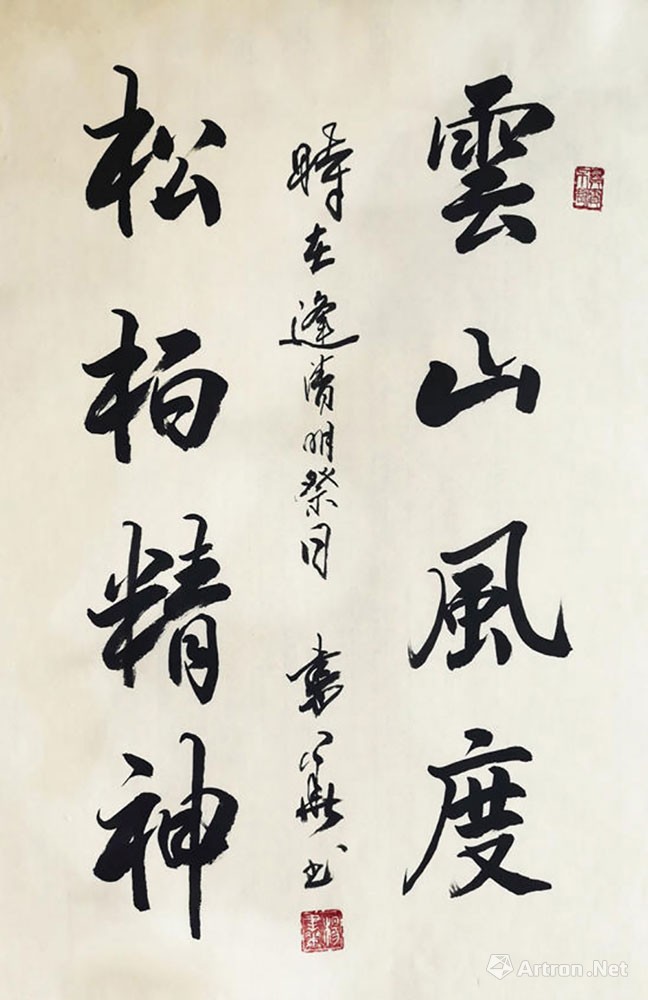 雲山風度
時在逢清明祭月
書
松柏精神
Artron.Net